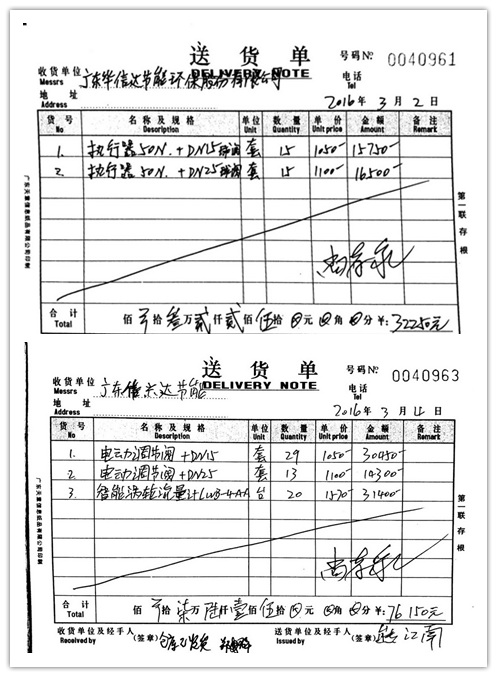 送货单
DELIVERY NOTE
号码No. 0040961
收货单位 广东华信达节能环保股份有限公司
Messrs
电话
Tel
地址
Address
2016年3月2日
货号 名称及规格 单位 数量 单价 金额 备注
No Description Unit Quantity Unit price Amount Remark
1. 执行器50N. +DN15球阀 套 15 1050- 15750-
2. 执行器50N. +DN25球阀 套 15 1100- 16500-
合计 佰 拾叁万贰仟贰佰伍拾 元 角 分 ¥:32250元
Total
第一联存根
广东天章信息纸品有限公司印制
送货单
DELIVERY NOTE
号码No. 0040963
收货单位 广东 达节能
Messrs
电话
Tel
地址
Address
2016年3月 日
货号 名称及规格 单位 数量 单价 金额 备注
No Description Unit Quantity Unit price Amount Remark
1. 电动调节阀 +DN15 套 29 1050- 30450-
2. 电动调节阀 +DN25 套 13 1100- 14300-
3. 智能涡轮流量计 台 20 1570- 31400-
合计 佰 拾柒万陆仟壹佰伍拾 元 角 分 ¥:76150元
Total
第一联存根
广东天章信息纸品有限公司印制
收货单位及经手人 (签章) 送货单位及经手人 (签章) 江南
Received by Issued by